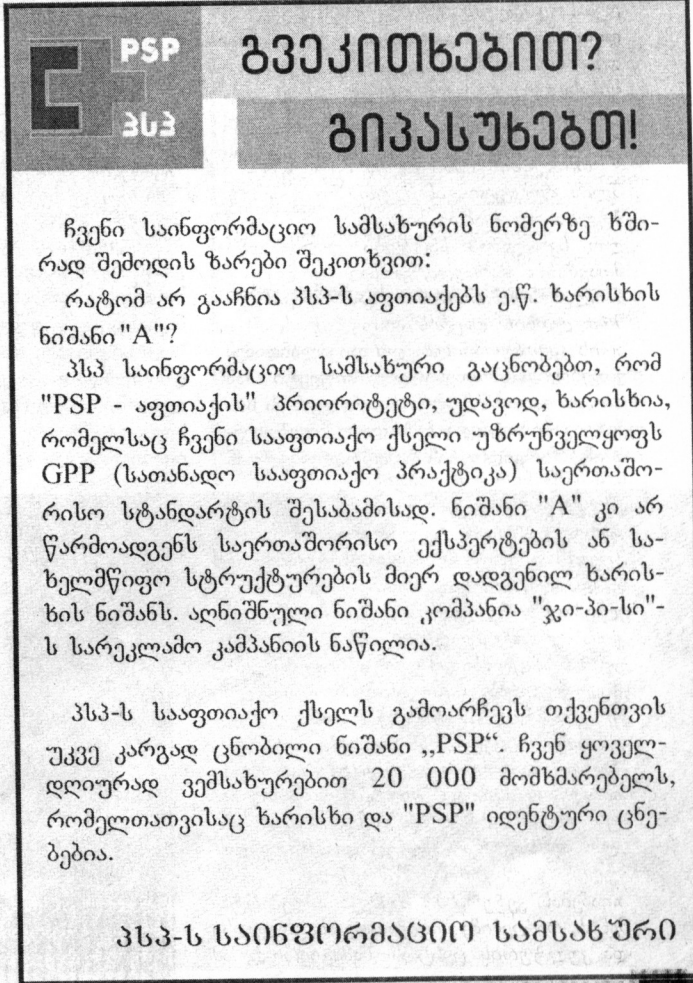 PSP
პსპ
გვეკითხებით?
გიპასუხებთ!
ჩვენი საინფორმაციო სამსახურის ნომერზე ხში-
რად შემოდის ზარები შეკითხვით:
რატომ არ გააჩნია პსპ-ს აფთიაქებს ე.წ. ხარისხის
ნიშანი "A"?
პსპ საინფორმაციო სამსახური გაცნობებთ, რომ
"PSP - აფთიაქის" პრიორიტეტი, უდავოდ, ხარისხია,
რომელსაც ჩვენი სააფთიაქო ქსელი უზრუნველყოფს
GPP (სათანადო სააფთიაქო პრაქტიკა) საერთაშო-
რისო სტანდარტის შესაბამისად. ნიშანი "A" კი არ
წარმოადგენს საერთაშორისო ექსპერტების ან სა-
ხელმწიფო სტრუქტურების მიერ დადგენილ ხარის-
ხის ნიშანს. აღნიშნული ნიშანი კომპანია "ჯი-პი-სი"-
ს სარეკლამო კამპანიის ნაწილია.
პსპ-ს სააფთიაქო ქსელს გამოარჩევს თქვენთვის
უკვე კარგად ცნობილი ნიშანი „PSP“. ჩვენ ყოველ-
დღიურად ვემსახურებით 20 000 მომხმარებელს,
რომელთათვისაც ხარისხი და "PSP" იდენტური ცნე-
ბებია.
პსპ-ს საინფორმაციო სამსახური